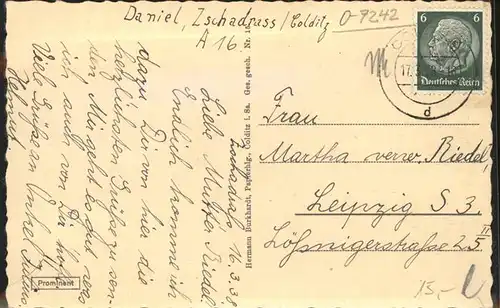 Daniel, Zschadrass/Colditz
A 16
O-7242
6 6
Deutsches Reich
17.
d
Zschadrass 16.3.38
Liebe Mutter Riedel!
Endlich komme ich
dazu Dir von hier die
herzlichsten Grüße zu sen-
den. Mir geht es gut was
ich auch von Dir hoffe.
Viele Grüße an Onkel
Helmut
Hermann Burkhardt, Papierhlg. Colditz i. Sa. Ges. gesch. Nr.
Frau
Martha verw. Riedel,
Leipzig S 3,
Lößnigerstraße 25 II
Prominent
15,-